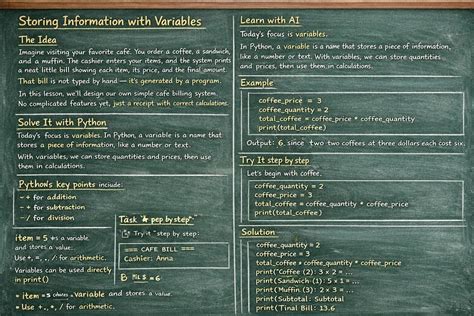 Storing Information with Variables
The Idea
Imagine visiting your favorite café. You order a coffee, a sandwich,
and a muffin. The cashier enters your items, and the system prints
a neat little bill showing each item, its price, and the final amount.
That bill is not typed by hand — it's generated by a program.
In this lesson, we'll design our own simple cafe billing system.
No complicated features yet, just a receipt with correct calculations.
Solve It with Python
Today's focus is variables. In Python, a variable is a name that
stores a piece of information, like a number or text.
With variables, we can store quantities and prices, then use
them in calculations.
Python's key points include:
- + for addition
- + for subtraction
- / for division
item = 5 is a variable
and stores a value.
Use +, for arithmetic.
Variables can be used directly
in print()
= item = 5 variable and stores a value.
• Use +, / for arithmetic.
Task pep by step
Try it "step by step:
=== CAFE BILL ===
Cashier: Anna
= 6
Learn with AI
Today's focus is variables.
In Python, a variable is a name that stores a piece of information,
like a number or text. With variables, we can store quantities
and prices, then use them in calculations.
Example
coffee_price = 3
coffee_quantity = 2
total_coffee = coffee_price * coffee_quantity
print(total_coffee)
Output: 6, since two two coffees at three dollars each cost six.
Try It step by step
Let's begin with coffee.
coffee_quantity = 2
coffee_price = 3
total_coffee = coffee_quantity * coffee_price
print(total_coffee)
Solution
coffee_quantity = 2
coffee_price = 3
total_coffee = coffee_quantity * coffee_price
print("Coffee (2): 3 x 2 = ...
print("Sandwich (1): 5 x 1 = ...
print("Muffin (2): 2 × 3 = ...
print("Subtotal: Subtotal
print("Tinal Bill: 13.6